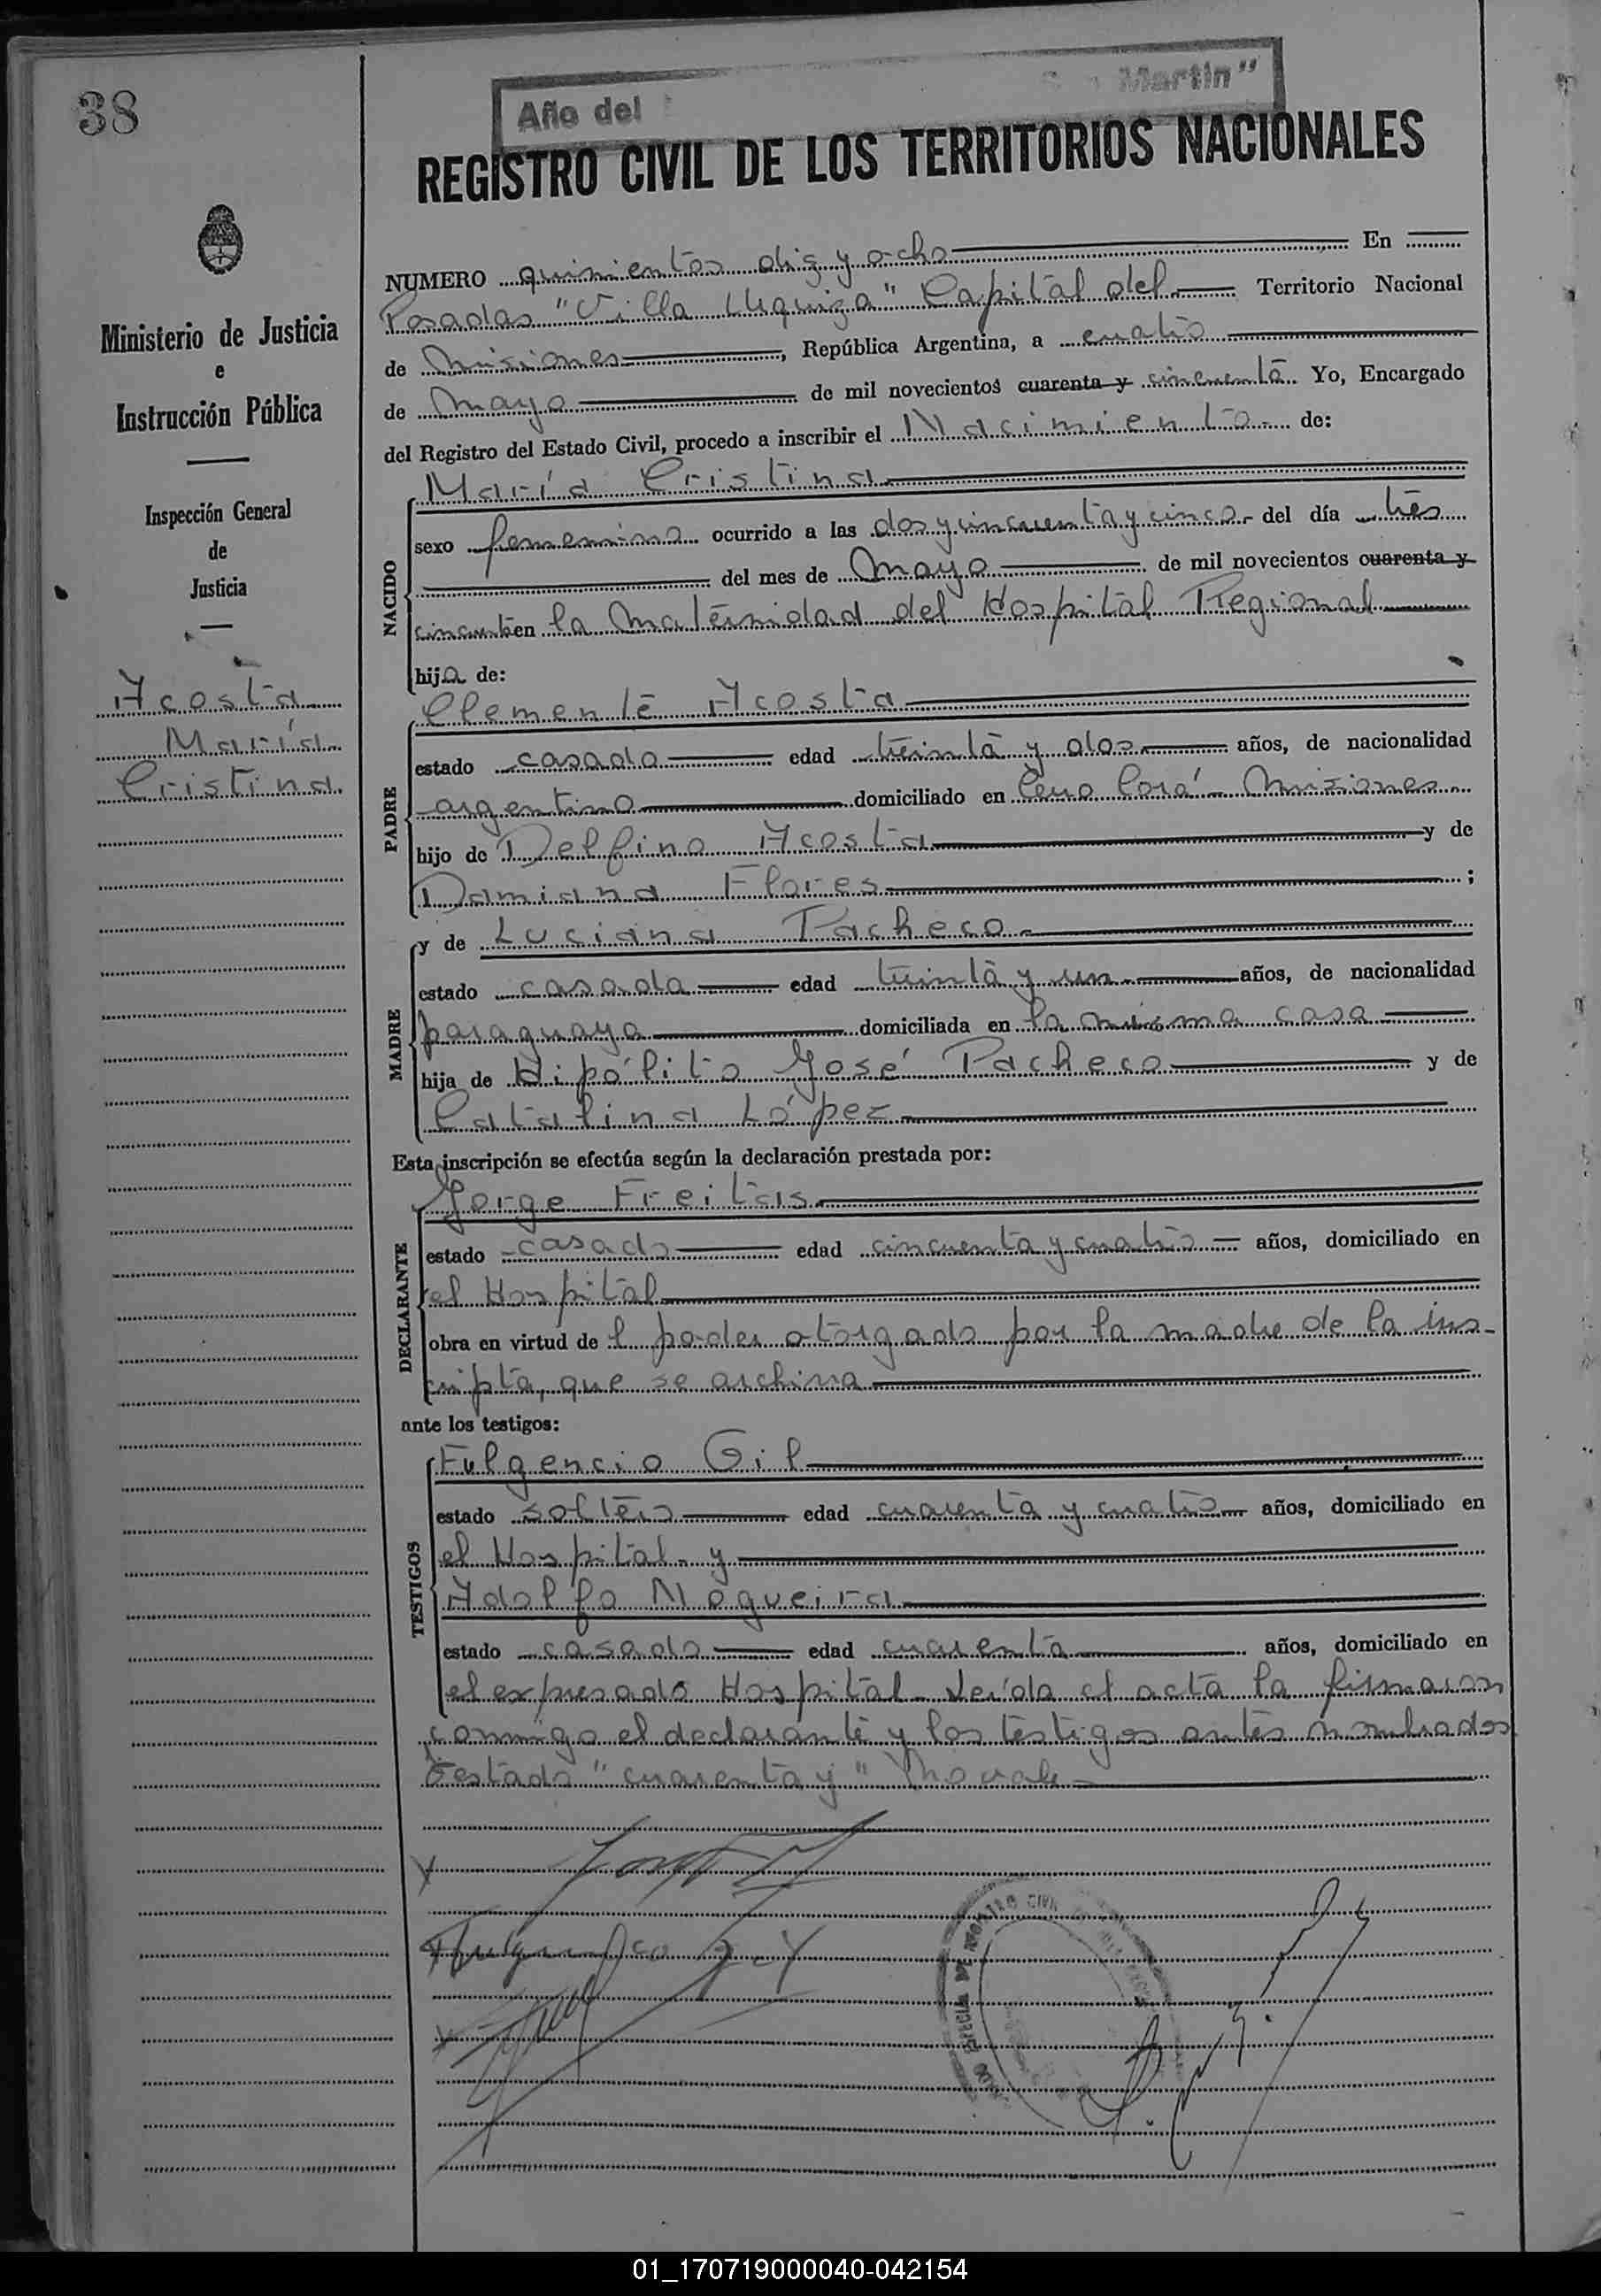 38
Año del
San Martín"
REGISTRO CIVIL DE LOS TERRITORIOS NACIONALES
Ministerio de Justicia
e
Instrucción Pública
Inspección General
de
Justicia
Acosta
María
Cristina
NUMERO quinientos diez y ocho En
Posadas "Villa Urquiza" Capital del Territorio Nacional
de Misiones, República Argentina, a cuatro
de Mayo de mil novecientos cuarenta y cincuenta Yo, Encargado
del Registro del Estado Civil, procedo a inscribir el Nacimiento de:
NACIDO
María Cristina
sexo femenino ocurrido a las dos y cincuenta y cinco del día tres
del mes de Mayo de mil novecientos cuarenta y
cincuenta en la Maternidad del Hospital Regional
hija de:
PADRE
Clemente Acosta
estado casado edad treinta y dos años, de nacionalidad
argentino domiciliado en Cerro Corá - Misiones
hijo de Delfino Acosta y de
Damiana Flores ;
MADRE
y de Luciana Pacheco
estado casada edad treinta y un años, de nacionalidad
paraguaya domiciliada en la misma casa
hija de Hipólito José Pacheco y de
Catalina López
Esta inscripción se efectúa según la declaración prestada por:
DECLARANTE
Jorge Freitas
estado casado edad cincuenta y cuatro años, domiciliado en
el Hospital
obra en virtud de l poder otorgado por la madre de la ins-
cripta, que se archiva
ante los testigos:
TESTIGOS
Fulgencio Gil
estado soltero edad cuarenta y cuatro años, domiciliado en
el Hospital y
Adolfo Nogueira
estado casado edad cuarenta años, domiciliado en
el expresado Hospital. Leída el acta la firmaron
conmigo el declarante y los testigos antes nombrados
Testado "cuarenta y" No vale
01_170719000040-042154